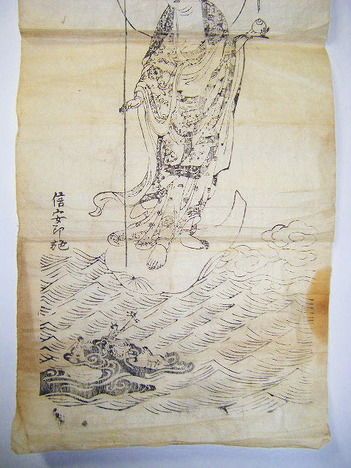 信安印施